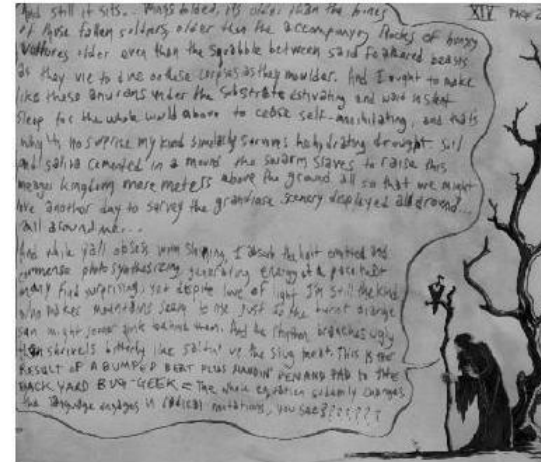 And still it sits... moss bided, it's older than the bones
of those fallen soldiers, older than the accompanying flocks of hungry
vultures older even than the squabble between said feathered beasts
as they vie to dine on these corpses as they moulder. And I ought to make
like these anurans under the substrate estivating and wait in silent
sleep for the whole world above to cease self-annihilating, and that's
why it's no surprise my kind similarly survives dehydrating drought soil
and saliva cemented in a mound the swarm slaves to raise this
meager kingdom mere meters above the ground all so that we might
live another day to survey the grandiose scenery displayed all around...
all around me...
And while y'all obsess upon shining, I absorb the light emitted and
commence photosynthesizing, generating energy at a pace that
many find surprising, yet despite love of light I'm still the kind
who makes mountains seem to rise just so the burnt orange
sun might sink behind them. And the rhythm branches ugly
then shrivels bitterly like saltin' up the slug meat. This is the
RESULT OF A BUMPED BEAT PLUS HANDIN' PEN AND PAD to THE
BACK YARD BUG-GEEK = The whole equation suddenly changes
the language engages in radical mutations, you see???????
XIV
Page 2